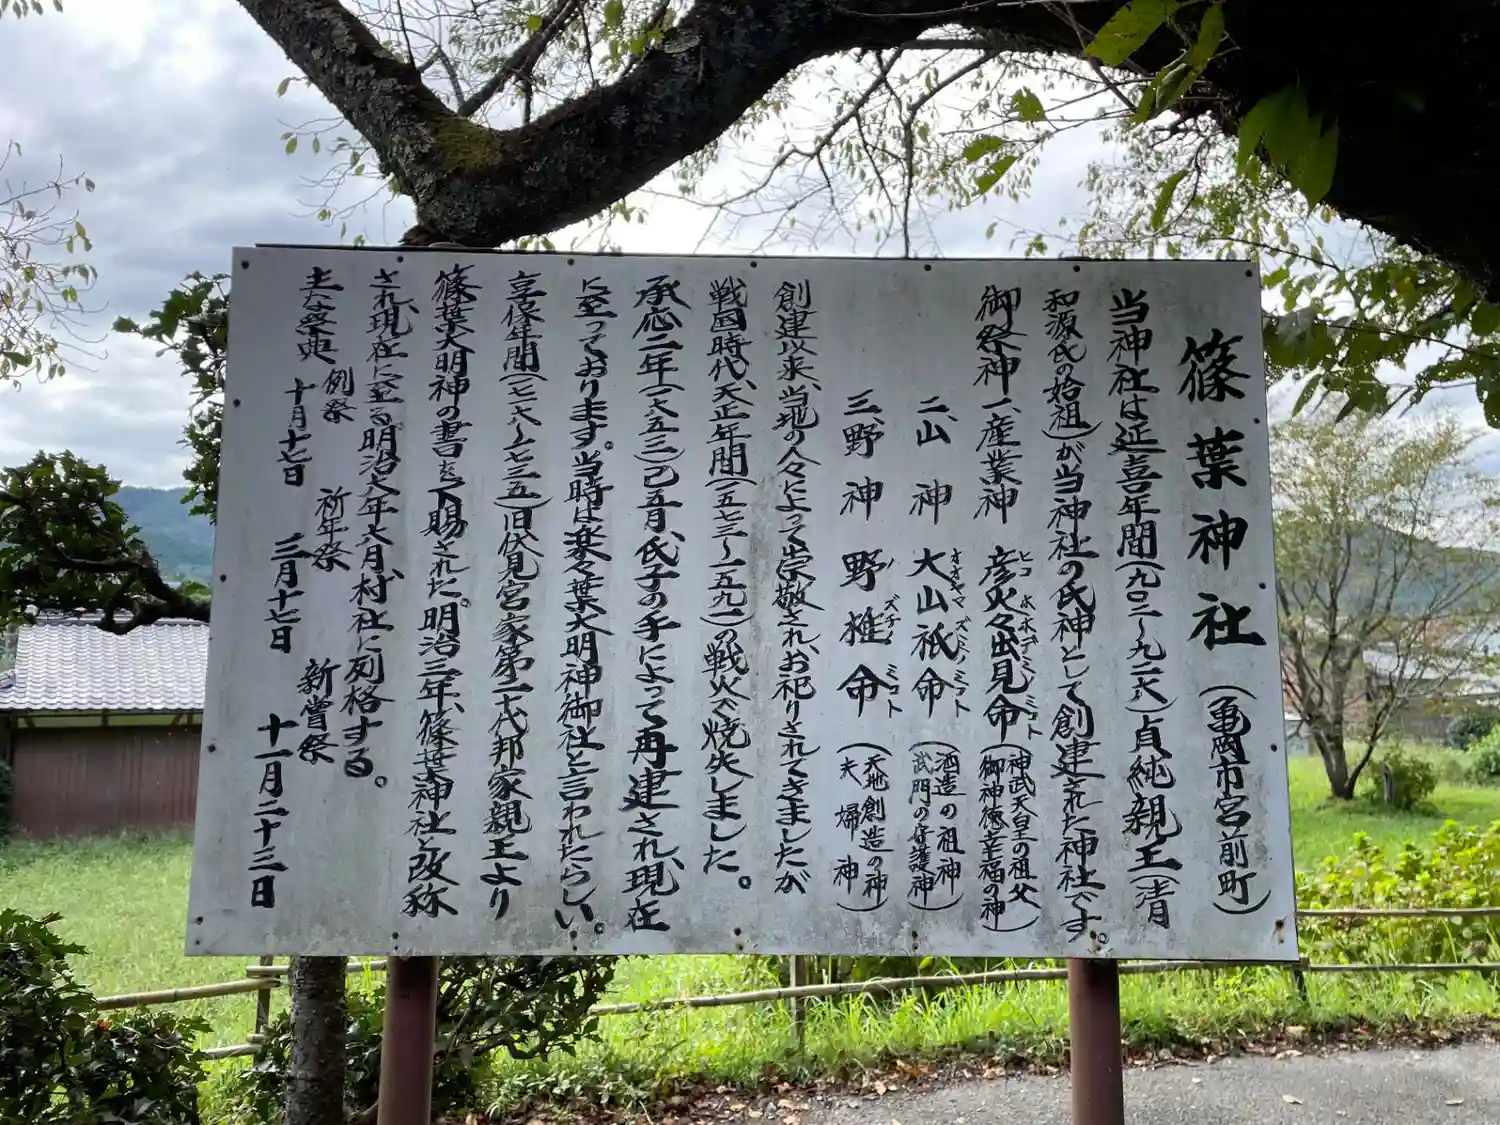 篠葉神社(亀岡市宮前町)
当神社は延喜年間(九〇二~九二六)貞純親王(清
和源氏の始祖)が当神社の氏神として創建された神社です。
御祭神 一、産業神 彦火々出見命(神武天皇の祖父 御神徳幸福の神)
ヒコ ホホデミノミコト
二、山神 大山祇命(酒造の祖神 武門の守護神)
オオヤマズミノミコト
三、野神 野椎命(天地創造の神 夫婦神)
ノズチノミコト
創建以来、当地の人々によって崇敬され、お祀りされてきましたが
戦国時代、天正年間(一五七三~一五九一)の戦火で焼失しました。
承応二年(一六五三)己五月、氏子の手によって再建され、現在
に至っております。当時は楽々葉大明神御社と言われたらしい。
享保年間(一七一六~一七三五)旧伏見宮家第二十代邦家親王より
篠葉大明神の書を下賜された。明治三年、篠葉神社と改称
され、現社に至る。明治六年六月、村社に列格する。
主な祭典 例祭 十月十七日 祈年祭 三月十七日 新嘗祭 十一月二十三日